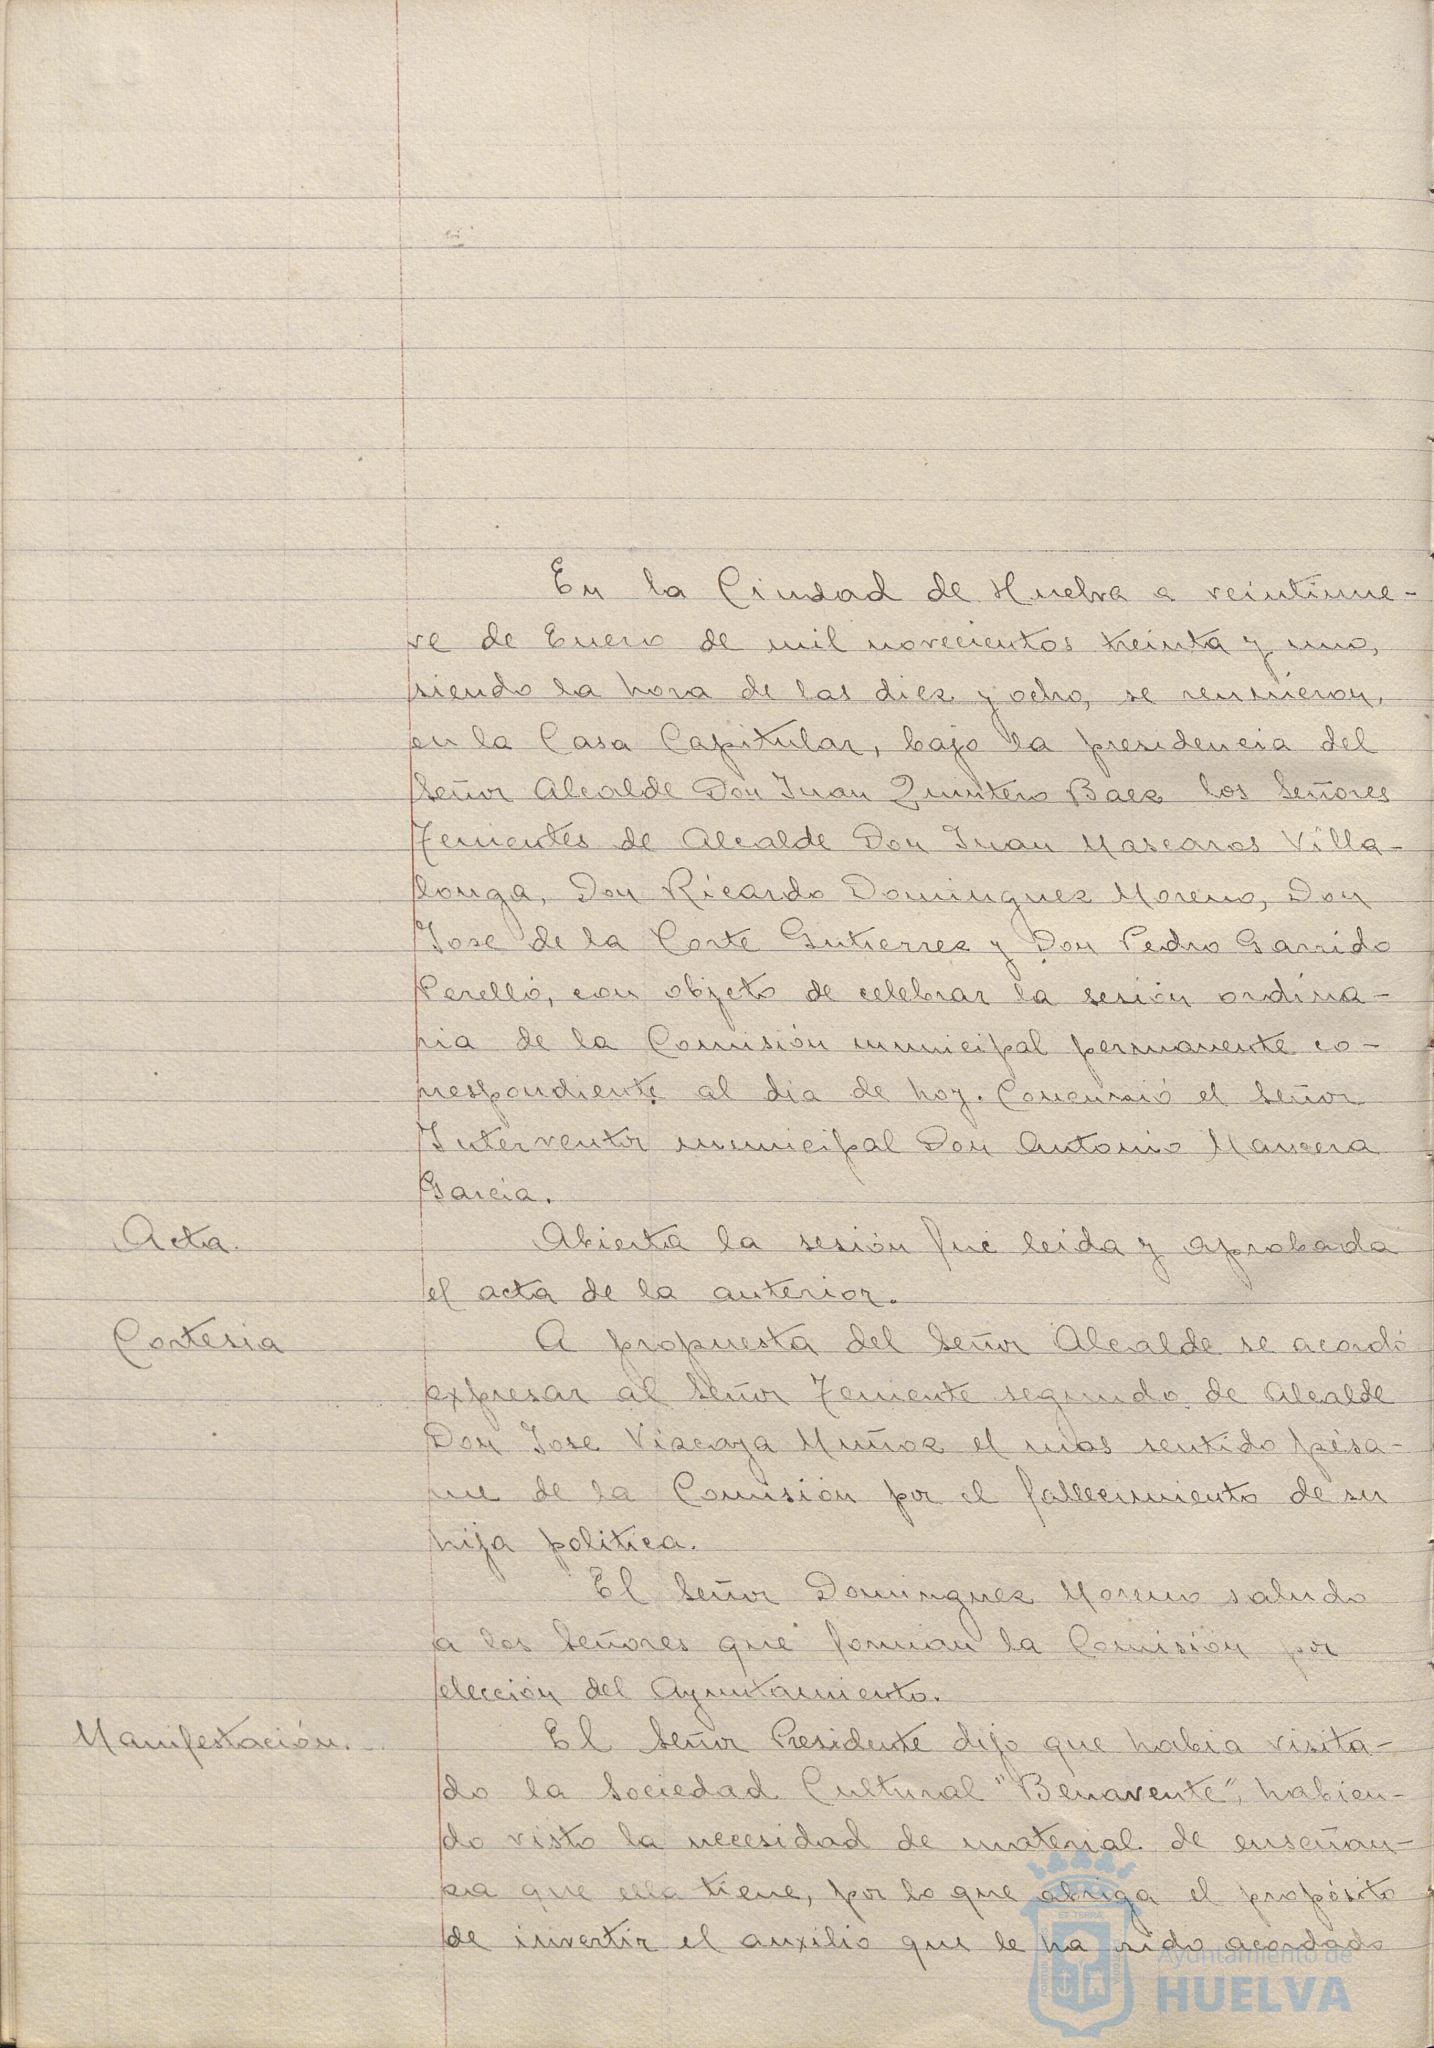 En la Ciudad de Huelva a veintinue-
ve de Enero de mil novecientos treinta y uno,
siendo la hora de las diez y ocho, se reunieron,
en la Casa Capitular, bajo la presidencia del
Señor Alcalde Don Juan Quintero Baez los Señores
Tenientes de Alcalde Don Juan Mascaros Villa-
longa, Don Ricardo Dominguez Moreno, Don
Jose de la Corte Gutierrez y Don Pedro Garrido
Perelló, con objeto de celebrar la sesión ordina-
ria de la Comisión municipal permanente co-
rrespondiente al dia de hoy. Concurrió el Señor
Interventor municipal Don Antonio Mancera
Garcia.
Acta. Abierta la sesión fué leida y aprobada
el acta de la anterior.
Cortesia A propuesta del Señor Alcalde se acordó
expresar al Señor Teniente segundo de Alcalde
Don Jose Vizcaya Muñoz el mas sentido pésa-
me de la Comisión por el fallecimiento de su
hija politica.
El Señor Dominguez Moreno saludo
a los Señores que forman la Comisión por
elección del Ayuntamiento.
Manifestación. El Señor Presidente dijo que habia visita-
do la Sociedad Cultural "Benavente", habien-
do visto la necesidad de material de enseñan-
za que ella tiene, por lo que abriga el propósito
de invertir el auxilio que le ha sido acordado
Ayuntamiento de
HUELVA